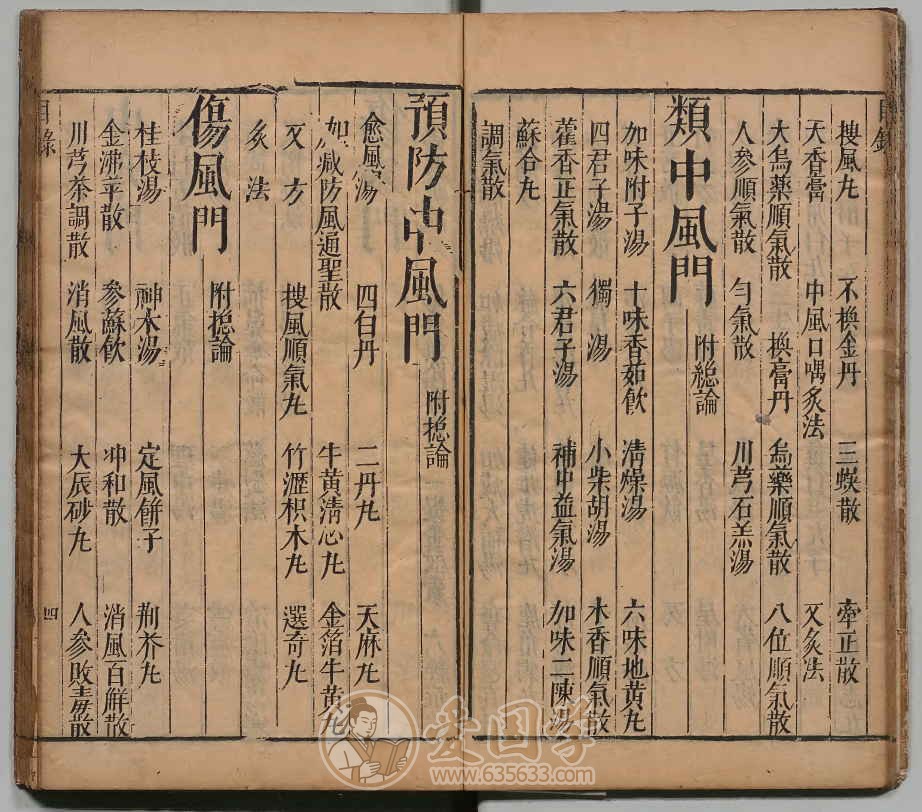 目錄
搜風丸 不換金丹 三蜈散 牽正散
天香膏 中風口喎炙法 又炙法
大烏藥順氣散 換膏丹 烏藥順氣散 八位順氣散
人參順氣散 勻氣散 川芎石羔湯
類中風門 附總論
加味附子湯 十味香茹飲 清燥湯 六味地黃丸
四君子湯 獨 湯 小柴胡湯 木香順氣散
藿香正氣散 六君子湯 補中益氣湯 加味二陳湯
蘇合丸
調氣散
預防中風門 附摠論
愈風湯 四白丹 二丹丸 天麻丸
加減防風通聖散 牛黃清心丸 金箔牛黃丸
又方 搜風順氣丸 竹瀝枳木丸 選奇丸
炙法
傷風門 附摠論
桂枝湯 神木湯 定風餅子 荆芥丸
金沸平散 參蘇飲 冲和散 消風百鮮散
川芎茶調散 消風散 大辰砂丸 人參敗毒散
目錄 四
爱国学
www.635633.com